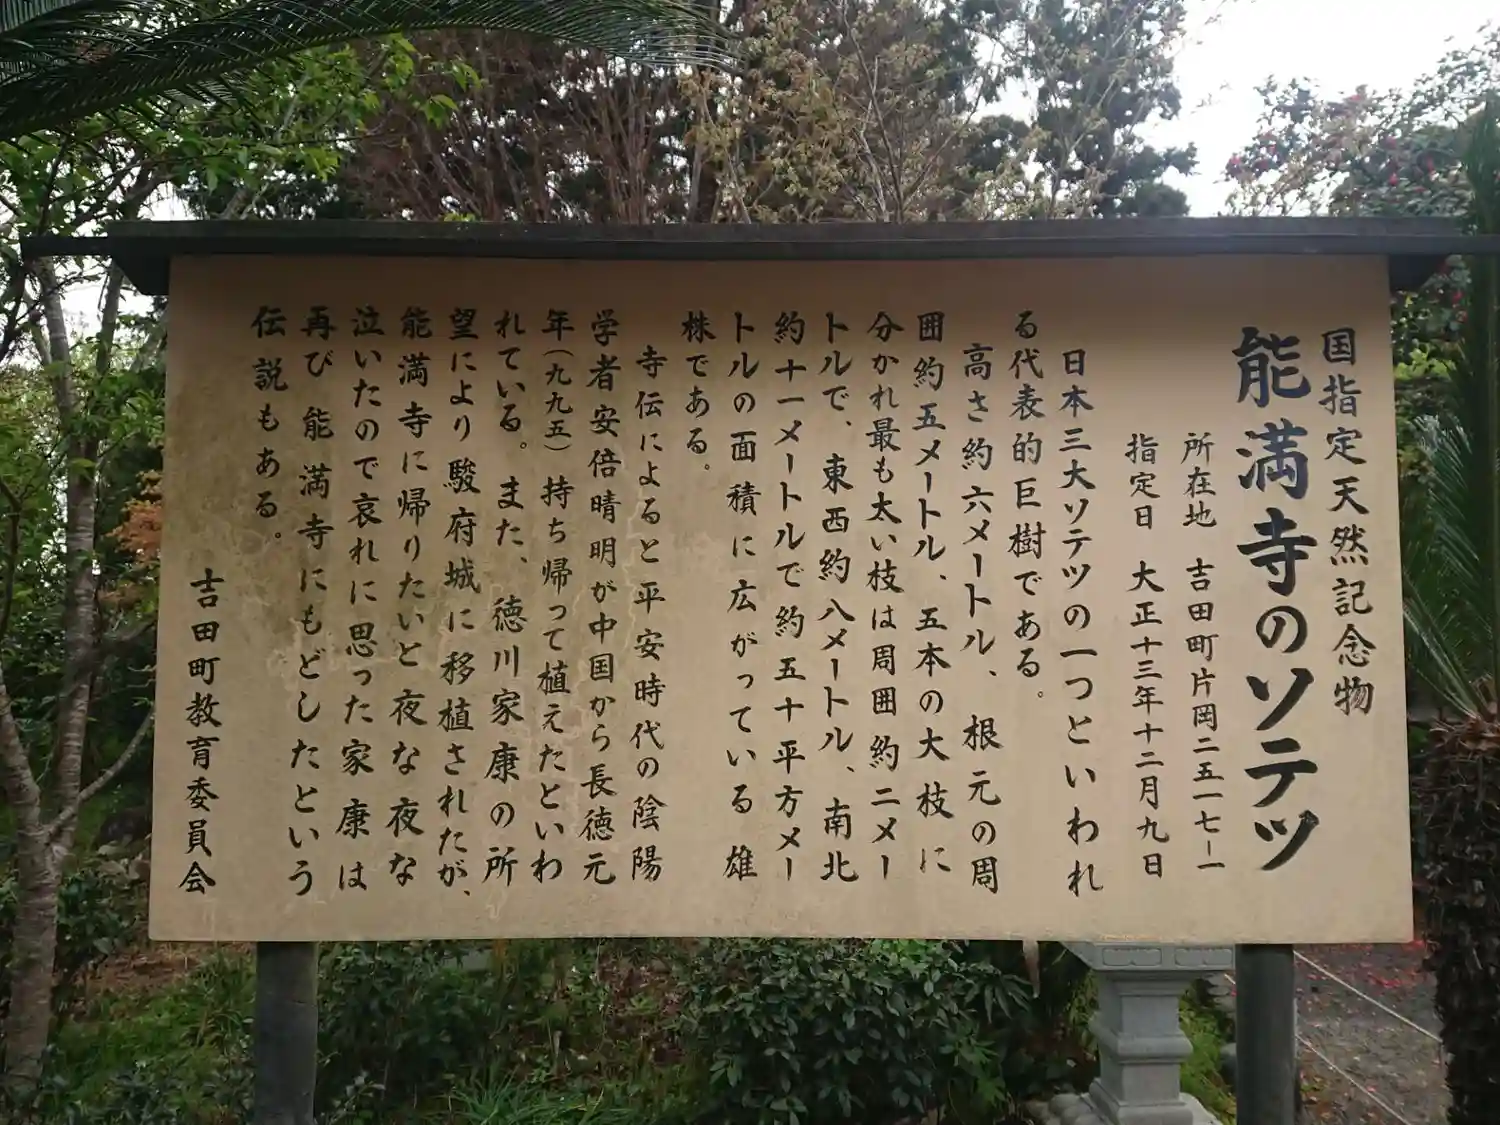 国指定天然記念物
能満寺のソテツ
所在地 吉田町片岡二五一七−一
指定日 大正十三年十二月九日
日本三大ソテツの一つといわれ
る代表的巨樹である。
高さ約六メートル、根元の周
囲約五メートル、五本の大枝に
分かれ最も太い枝は周囲約二メー
トルで、東西約八メートル、南北
約十一メートルで約五十平方メー
トルの面積に広がっている雄
株である。
寺伝によると平安時代の陰陽
学者安倍晴明が中国から長徳元
年(九九五)持ち帰って植えたといわ
れている。また、徳川家康の所
望により駿府城に移植されたが、
能満寺に帰りたいと夜な夜な
泣いたので哀れに思った家康は
再び能満寺にもどしたという
伝説もある。
吉田町教育委員会